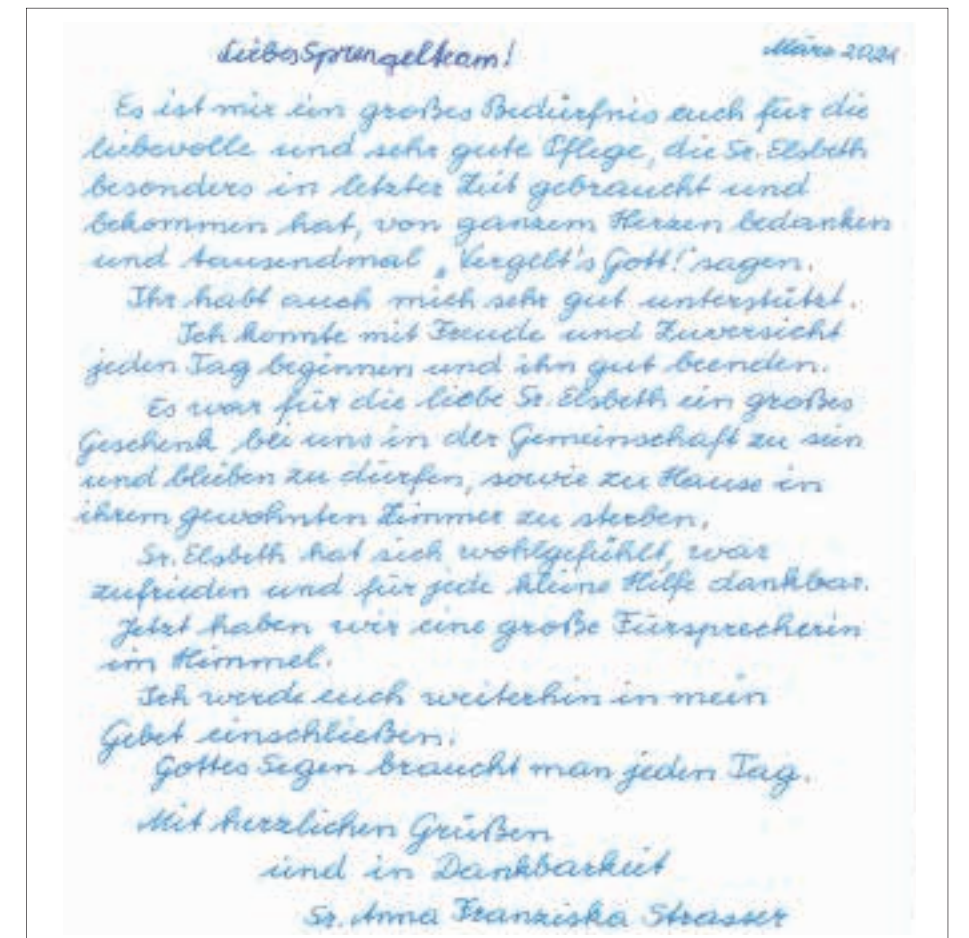 Liebes Sprengelteam! März 2024
Es ist mir ein großes Bedürfnis euch für die
liebevolle und sehr gute Pflege, die Sr. Elsbeth
besonders in letzter Zeit gebraucht und
bekommen hat, von ganzem Herzen bedanken
und tausendmal „Vergelt's Gott!" sagen.
Ihr habt auch mich sehr gut unterstützt.
Ich konnte mit Freude und Zuversicht
jeden Tag beginnen und ihn gut beenden.
Es war für die liebe Sr. Elsbeth ein großes
Geschenk bei uns in der Gemeinschaft zu sein
und bleiben zu dürfen, sowie zu Hause in
ihrem gewohnten Zimmer zu sterben.
Sr. Elsbeth hat sich wohlgefühlt, war
zufrieden und für jede kleine Hilfe dankbar.
Jetzt haben wir eine große Fürsprecherin
im Himmel.
Ich werde euch weiterhin in mein
Gebet einschließen.
Gottes Segen braucht man jeden Tag.
Mit herzlichen Grüßen
und in Dankbarkeit
Sr. Anna Franziska Strasser